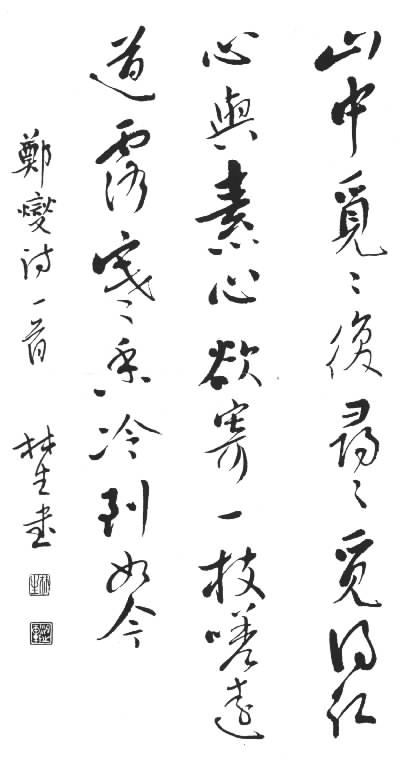 山中覓〻復尋〻覓得紅
心與素心欲寄一枝嗟遠
道露寒香冷到如今
鄭燮詩一首 林生書